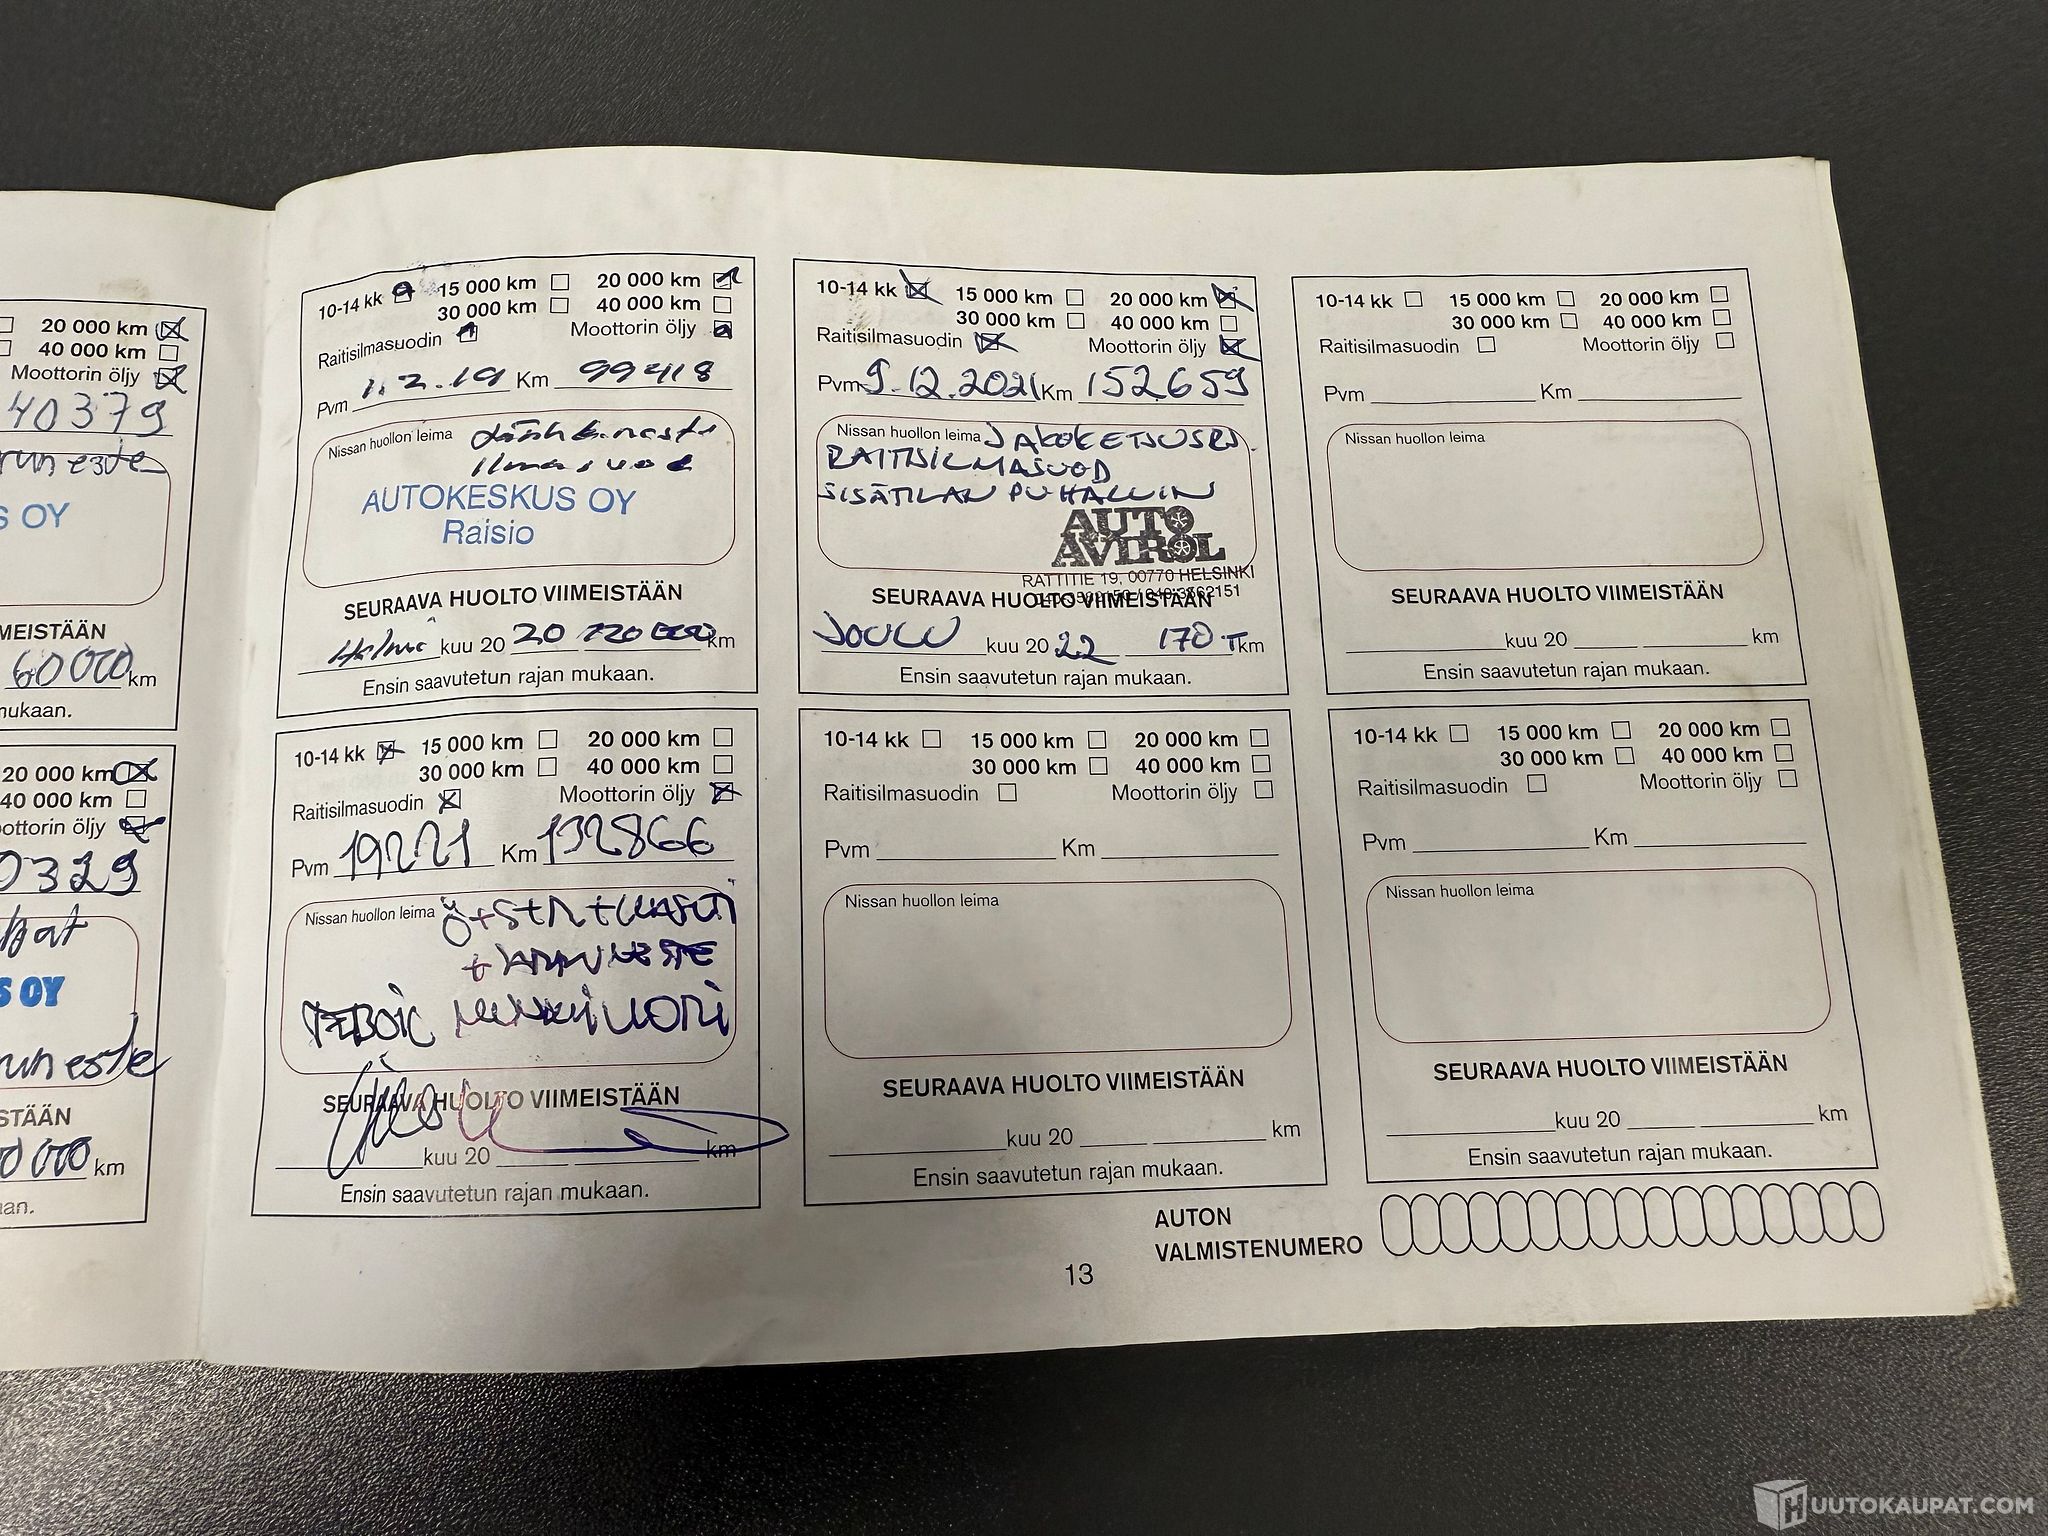 20 000 km
40 000 km
Moottorin öljy
40379
S OY
MEISTÄÄN
60000 km
mukaan.
20 000 km
40 000 km
oottorin öljy
0329
S OY
un este
STÄÄN
0000 km
aan.
10-14 kk 15 000 km 20 000 km
30 000 km 40 000 km
Raitisilmasuodin Moottorin öljy
Pvm 1.2.19 Km 99418
Nissan huollon leima
AUTOKESKUS OY
Raisio
SEURAAVA HUOLTO VIIMEISTÄÄN
Helmi kuu 20 20 120 000 km
Ensin saavutetun rajan mukaan.
10-14 kk 15 000 km 20 000 km
30 000 km 40 000 km
Raitisilmasuodin Moottorin öljy
Pvm 19221 Km 132866
Nissan huollon leima
SEURAAVA HUOLTO VIIMEISTÄÄN
kuu 20 km
Ensin saavutetun rajan mukaan.
10-14 kk 15 000 km 20 000 km
30 000 km 40 000 km
Raitisilmasuodin Moottorin öljy
Pvm 9.12.2021 Km 152659
Nissan huollon leima
RAITISILMASUOD
SISÄTILAN PUHALLIN
AUTO
AVIROL
RATTITIE 19, 00770 HELSINKI
SEURAAVA HUOLTO VIIMEISTÄÄN
JOULU kuu 20 22 170 T km
Ensin saavutetun rajan mukaan.
10-14 kk 15 000 km 20 000 km
30 000 km 40 000 km
Raitisilmasuodin Moottorin öljy
Pvm Km
Nissan huollon leima
SEURAAVA HUOLTO VIIMEISTÄÄN
kuu 20 km
Ensin saavutetun rajan mukaan.
10-14 kk 15 000 km 20 000 km
30 000 km 40 000 km
Raitisilmasuodin Moottorin öljy
Pvm Km
Nissan huollon leima
SEURAAVA HUOLTO VIIMEISTÄÄN
kuu 20 km
Ensin saavutetun rajan mukaan.
10-14 kk 15 000 km 20 000 km
30 000 km 40 000 km
Raitisilmasuodin Moottorin öljy
Pvm Km
Nissan huollon leima
SEURAAVA HUOLTO VIIMEISTÄÄN
kuu 20 km
Ensin saavutetun rajan mukaan.
AUTON
VALMISTENUMERO
13
HUUTOKAUPAT.COM